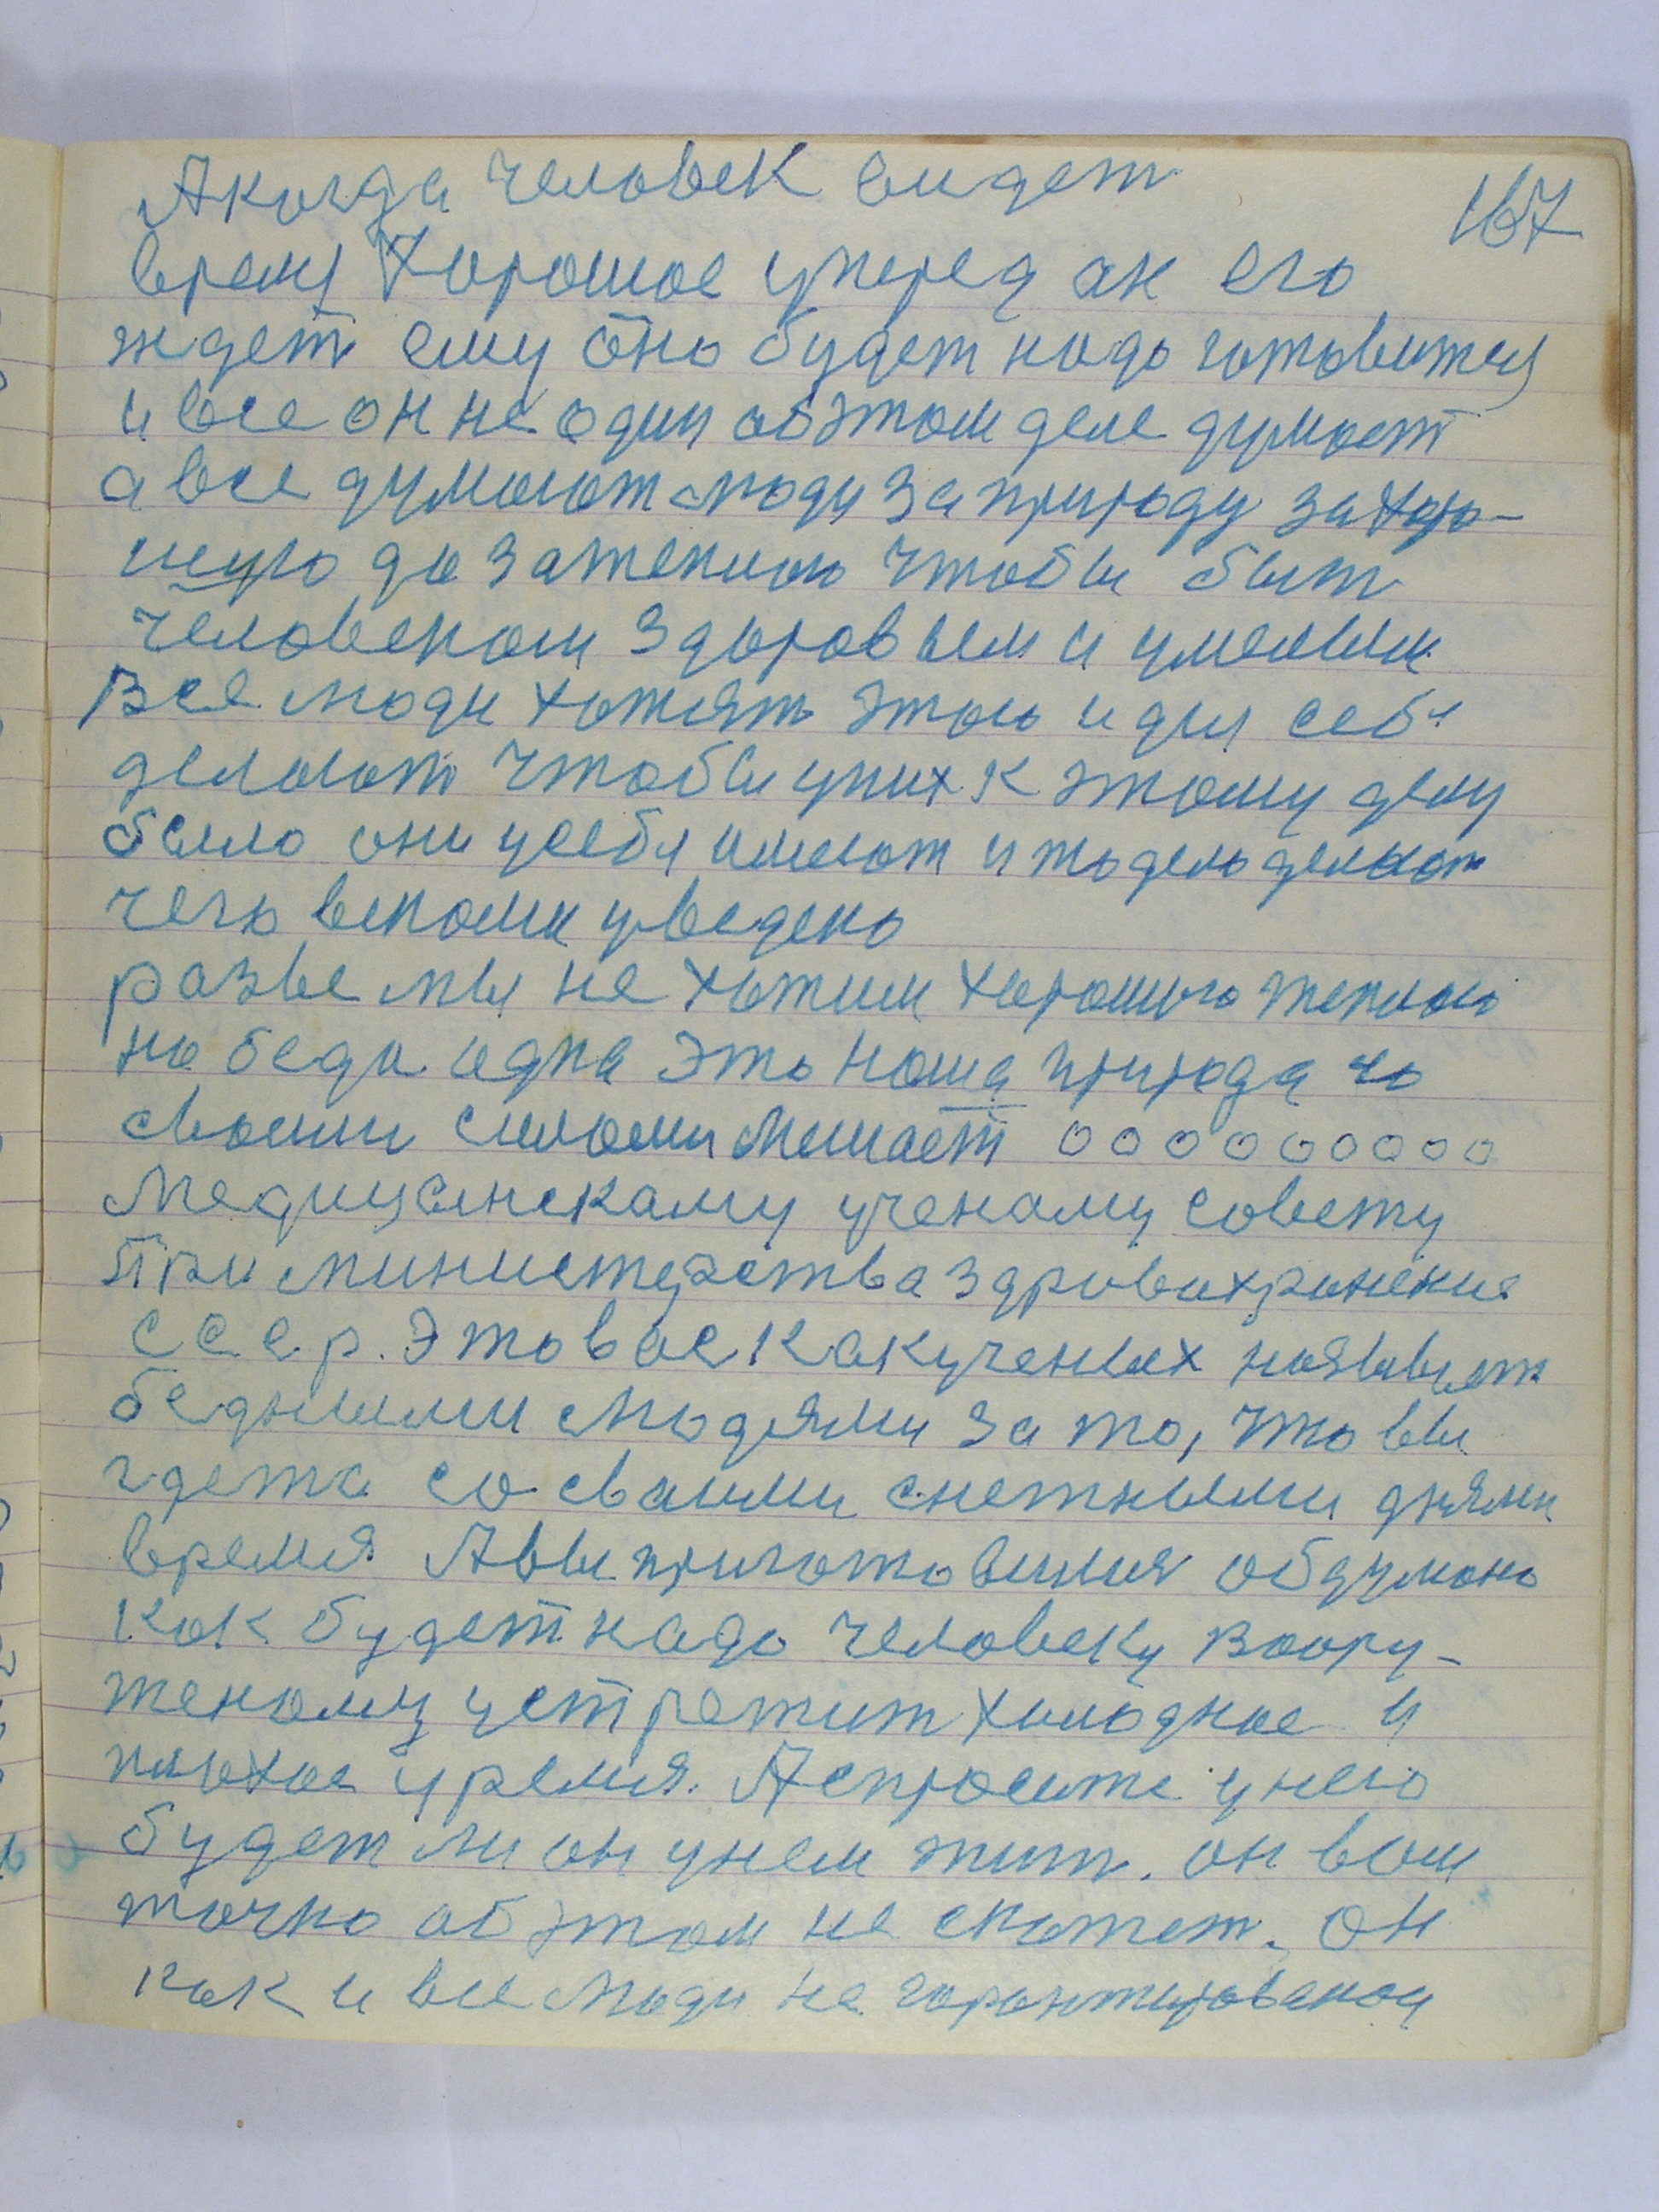 167
А когда человек видет
время хорошое уперед ан его
ждет ему оно будет надо готовится
и все он не один об этом деле думает
а все думают люди за природу за хоро-
шую да за теплою чтобы быт
человеком здоровым и умелым
Все люди хотять этого и для себя
делают чтобы у них к этому делу
было они усебя имеют и то дело делают
чего веками уведено
разве мы не хотим хорошого теплого
но беда одна это наша природа
своими силами мешает ооооооооо
Медицынскаму ученому совету
При министерства здровахранения
СССР. Это вас как ученых называет
бедными людями за то, что вы
здете со своими снетными днями
время А вы приготовился обдумано
Как будет надо человеку Воору-
женому устретит холодное и
плохое уремя. А спросите у него
будет ли он унем жит. он вам
точно об этом не скажет. Он
как и все люди не гарантированой